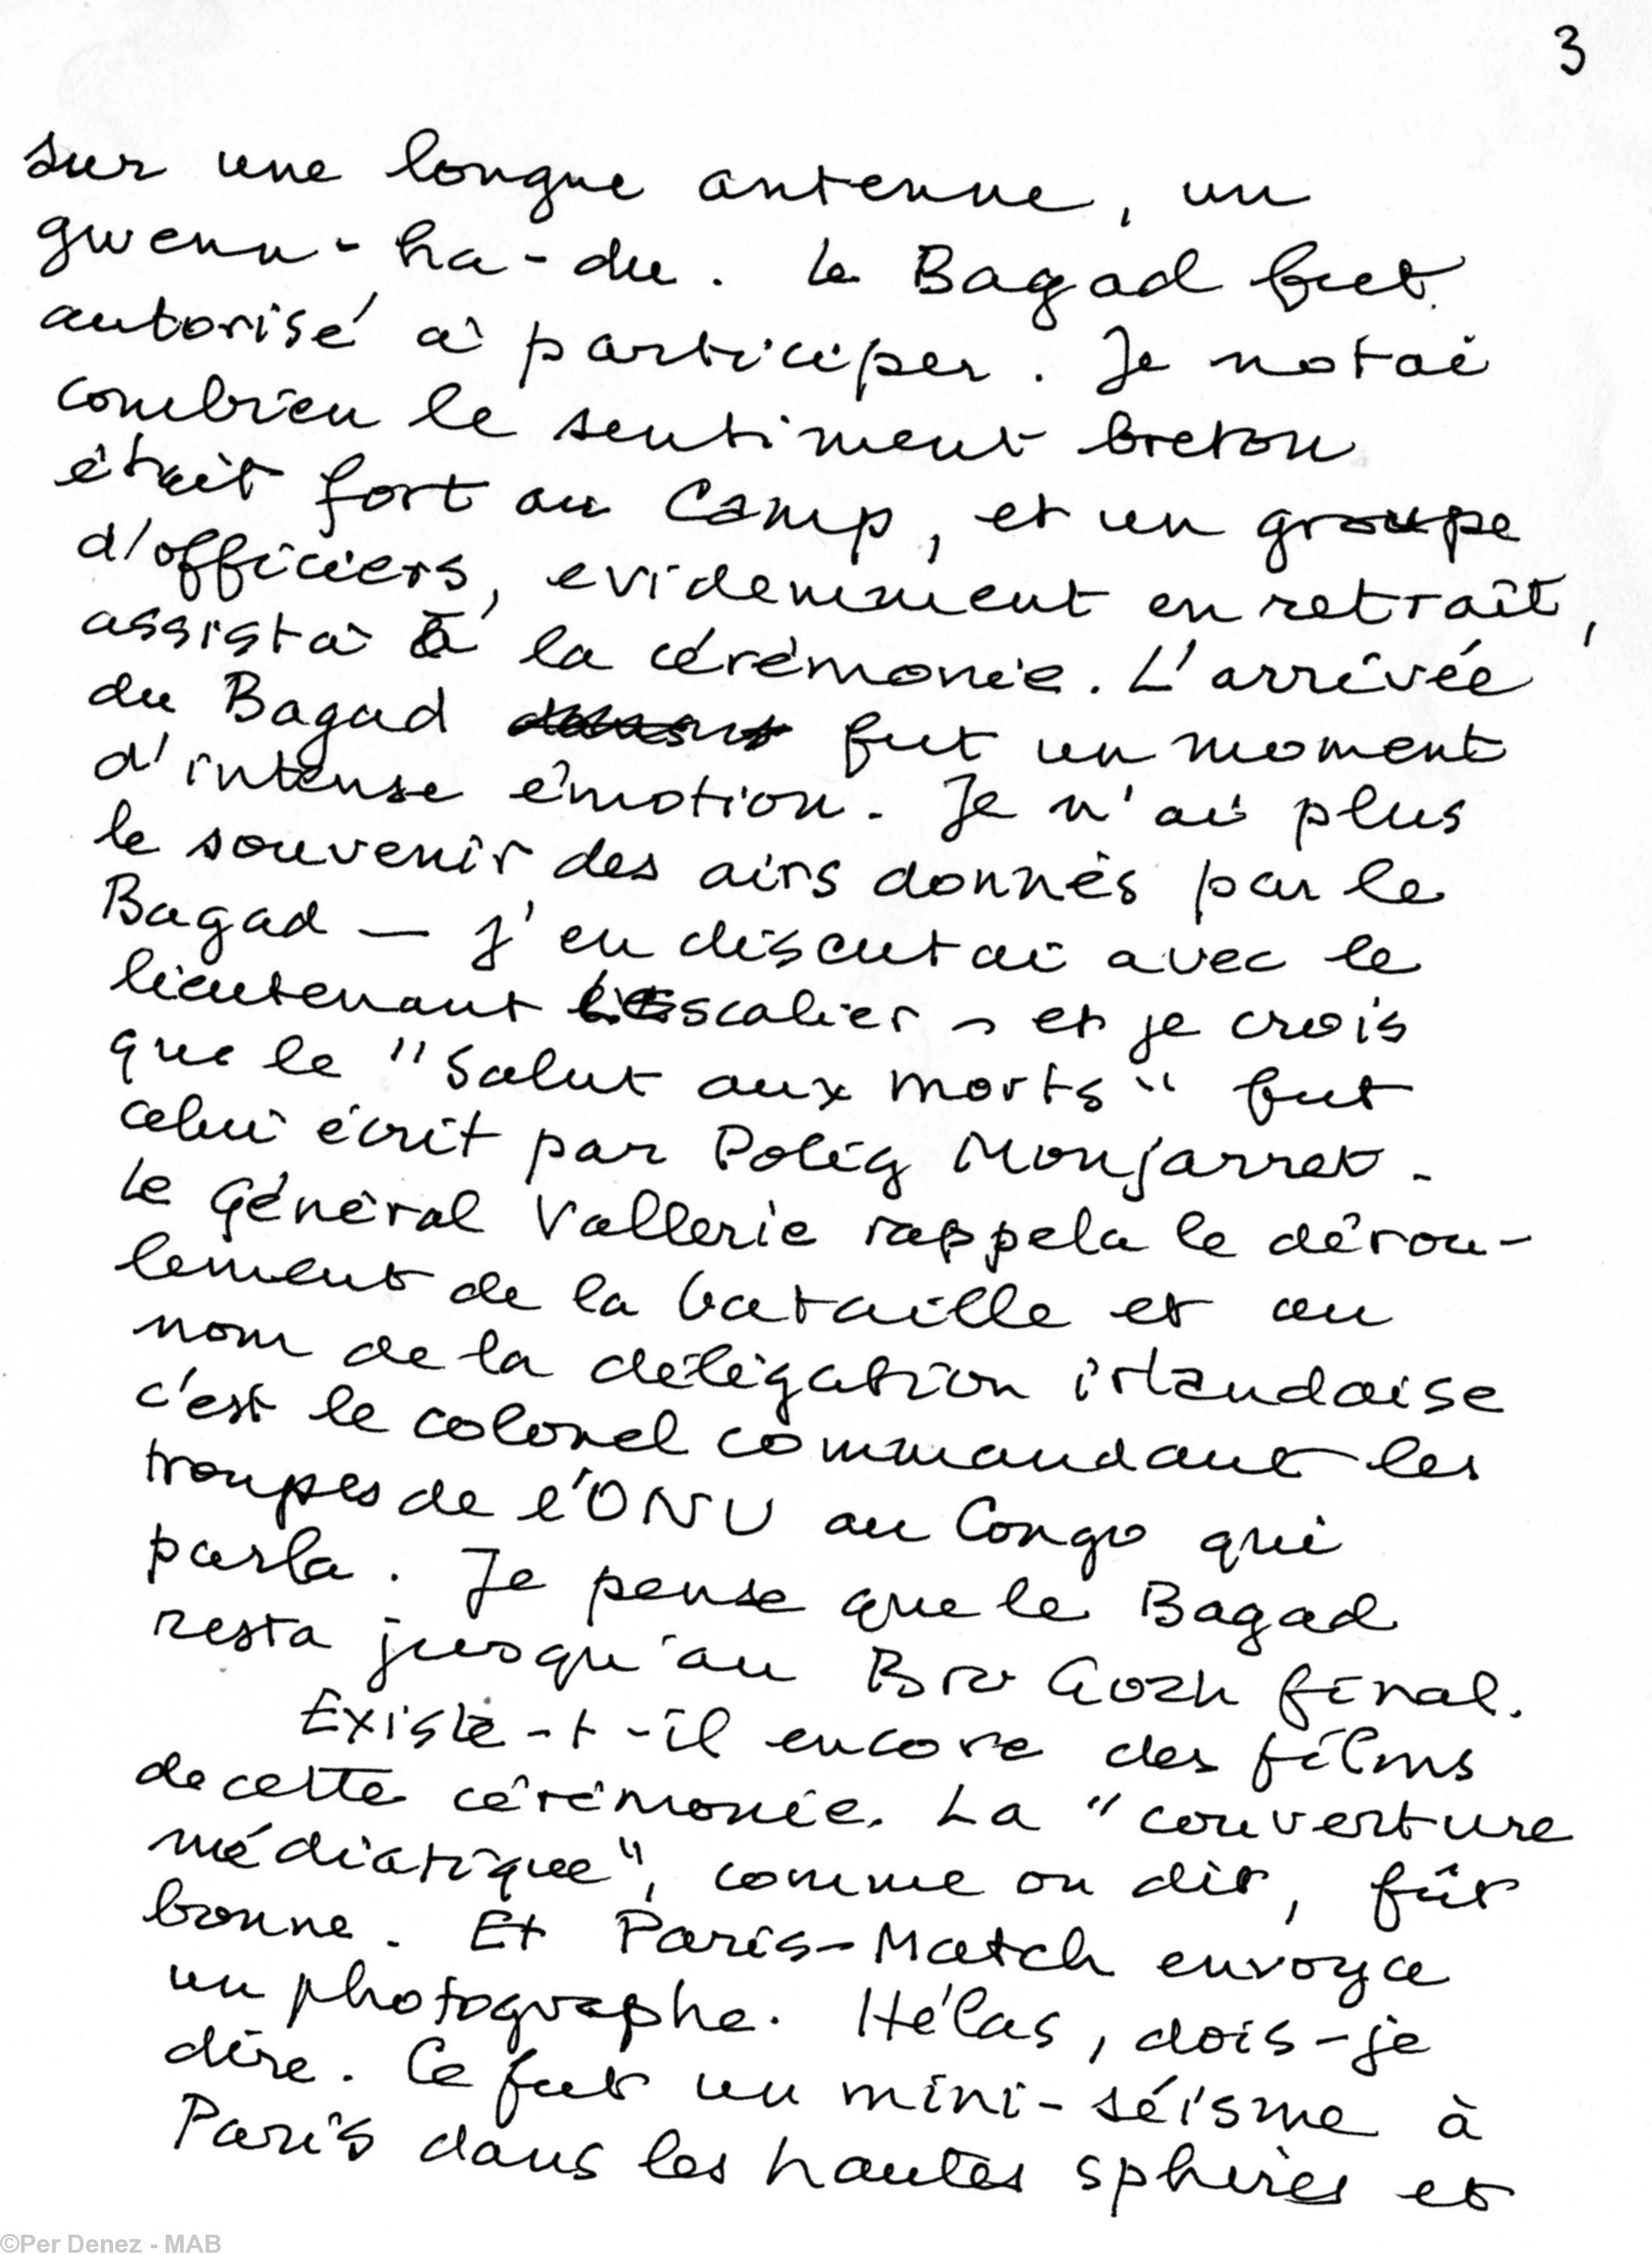 3
sur une longue antenne, un
gwenn-ha-du. Le Bagad fut
autorisé à participer. Je notai
combien le sentiment breton
était fort au Camp, et un groupe
d'officiers, evidemment en retrait,
assista à la cérémonie. L'arrivée
du Bagad fut un moment
d'intense émotion. Je n'ai plus
le souvenir des airs donnés par le
Bagad — j'en discutai avec le
lieutenant Lescalier - et je crois
que le "Salut aux morts" fut
celui écrit par Polig Monjarret.
Le Général Vallerie rappela le dérou-
lement de la bataille et au
nom de la délégation irlandaise
c'est le colonel commandant les
troupes de l'ONU au Congo qui
parla. Je pense que le Bagad
resta jusqu'au Bro Gozh final.
Existe-t-il encore des films
de cette cérémonie. La "couverture
médiatique", comme on dit, fût
bonne. Et Paris-Match envoya
un photographe. Hélas, dois-je
dire. Ce fut un mini-séisme à
Paris dans les hautes sphères et
©Per Denez - MAB